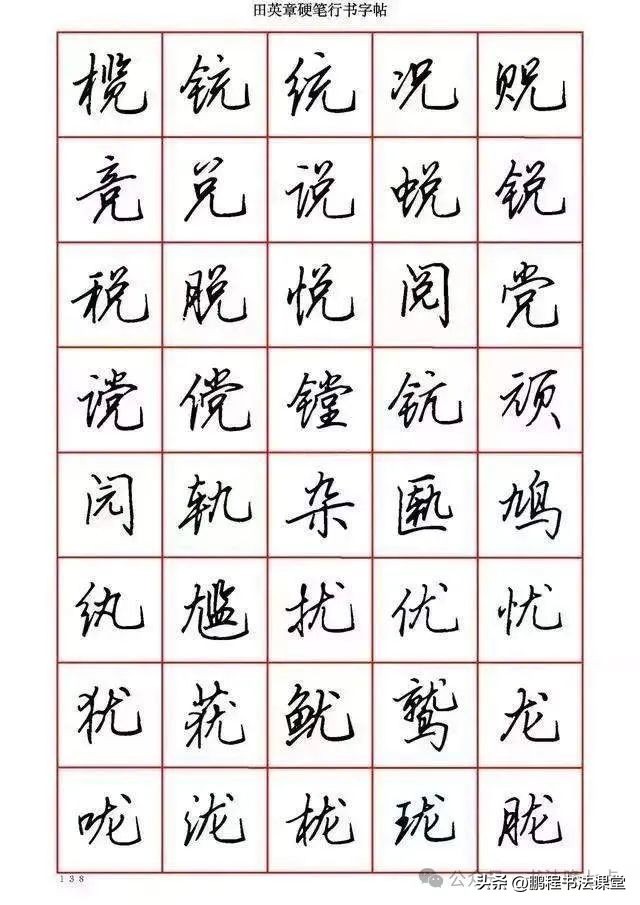 田英章硬笔行书字帖
榄 铳 统 况 贶
竞 兑 说 蜕 锐
税 脱 悦 阅 党
谠 傥 镋 钪 顽
闶 轨 杂 匦 鸠
纨 尴 扰 优 忧
犹 莸 鱿 鹫 龙
咙 泷 栊 珑 胧
138
头条@鹏程书法课堂